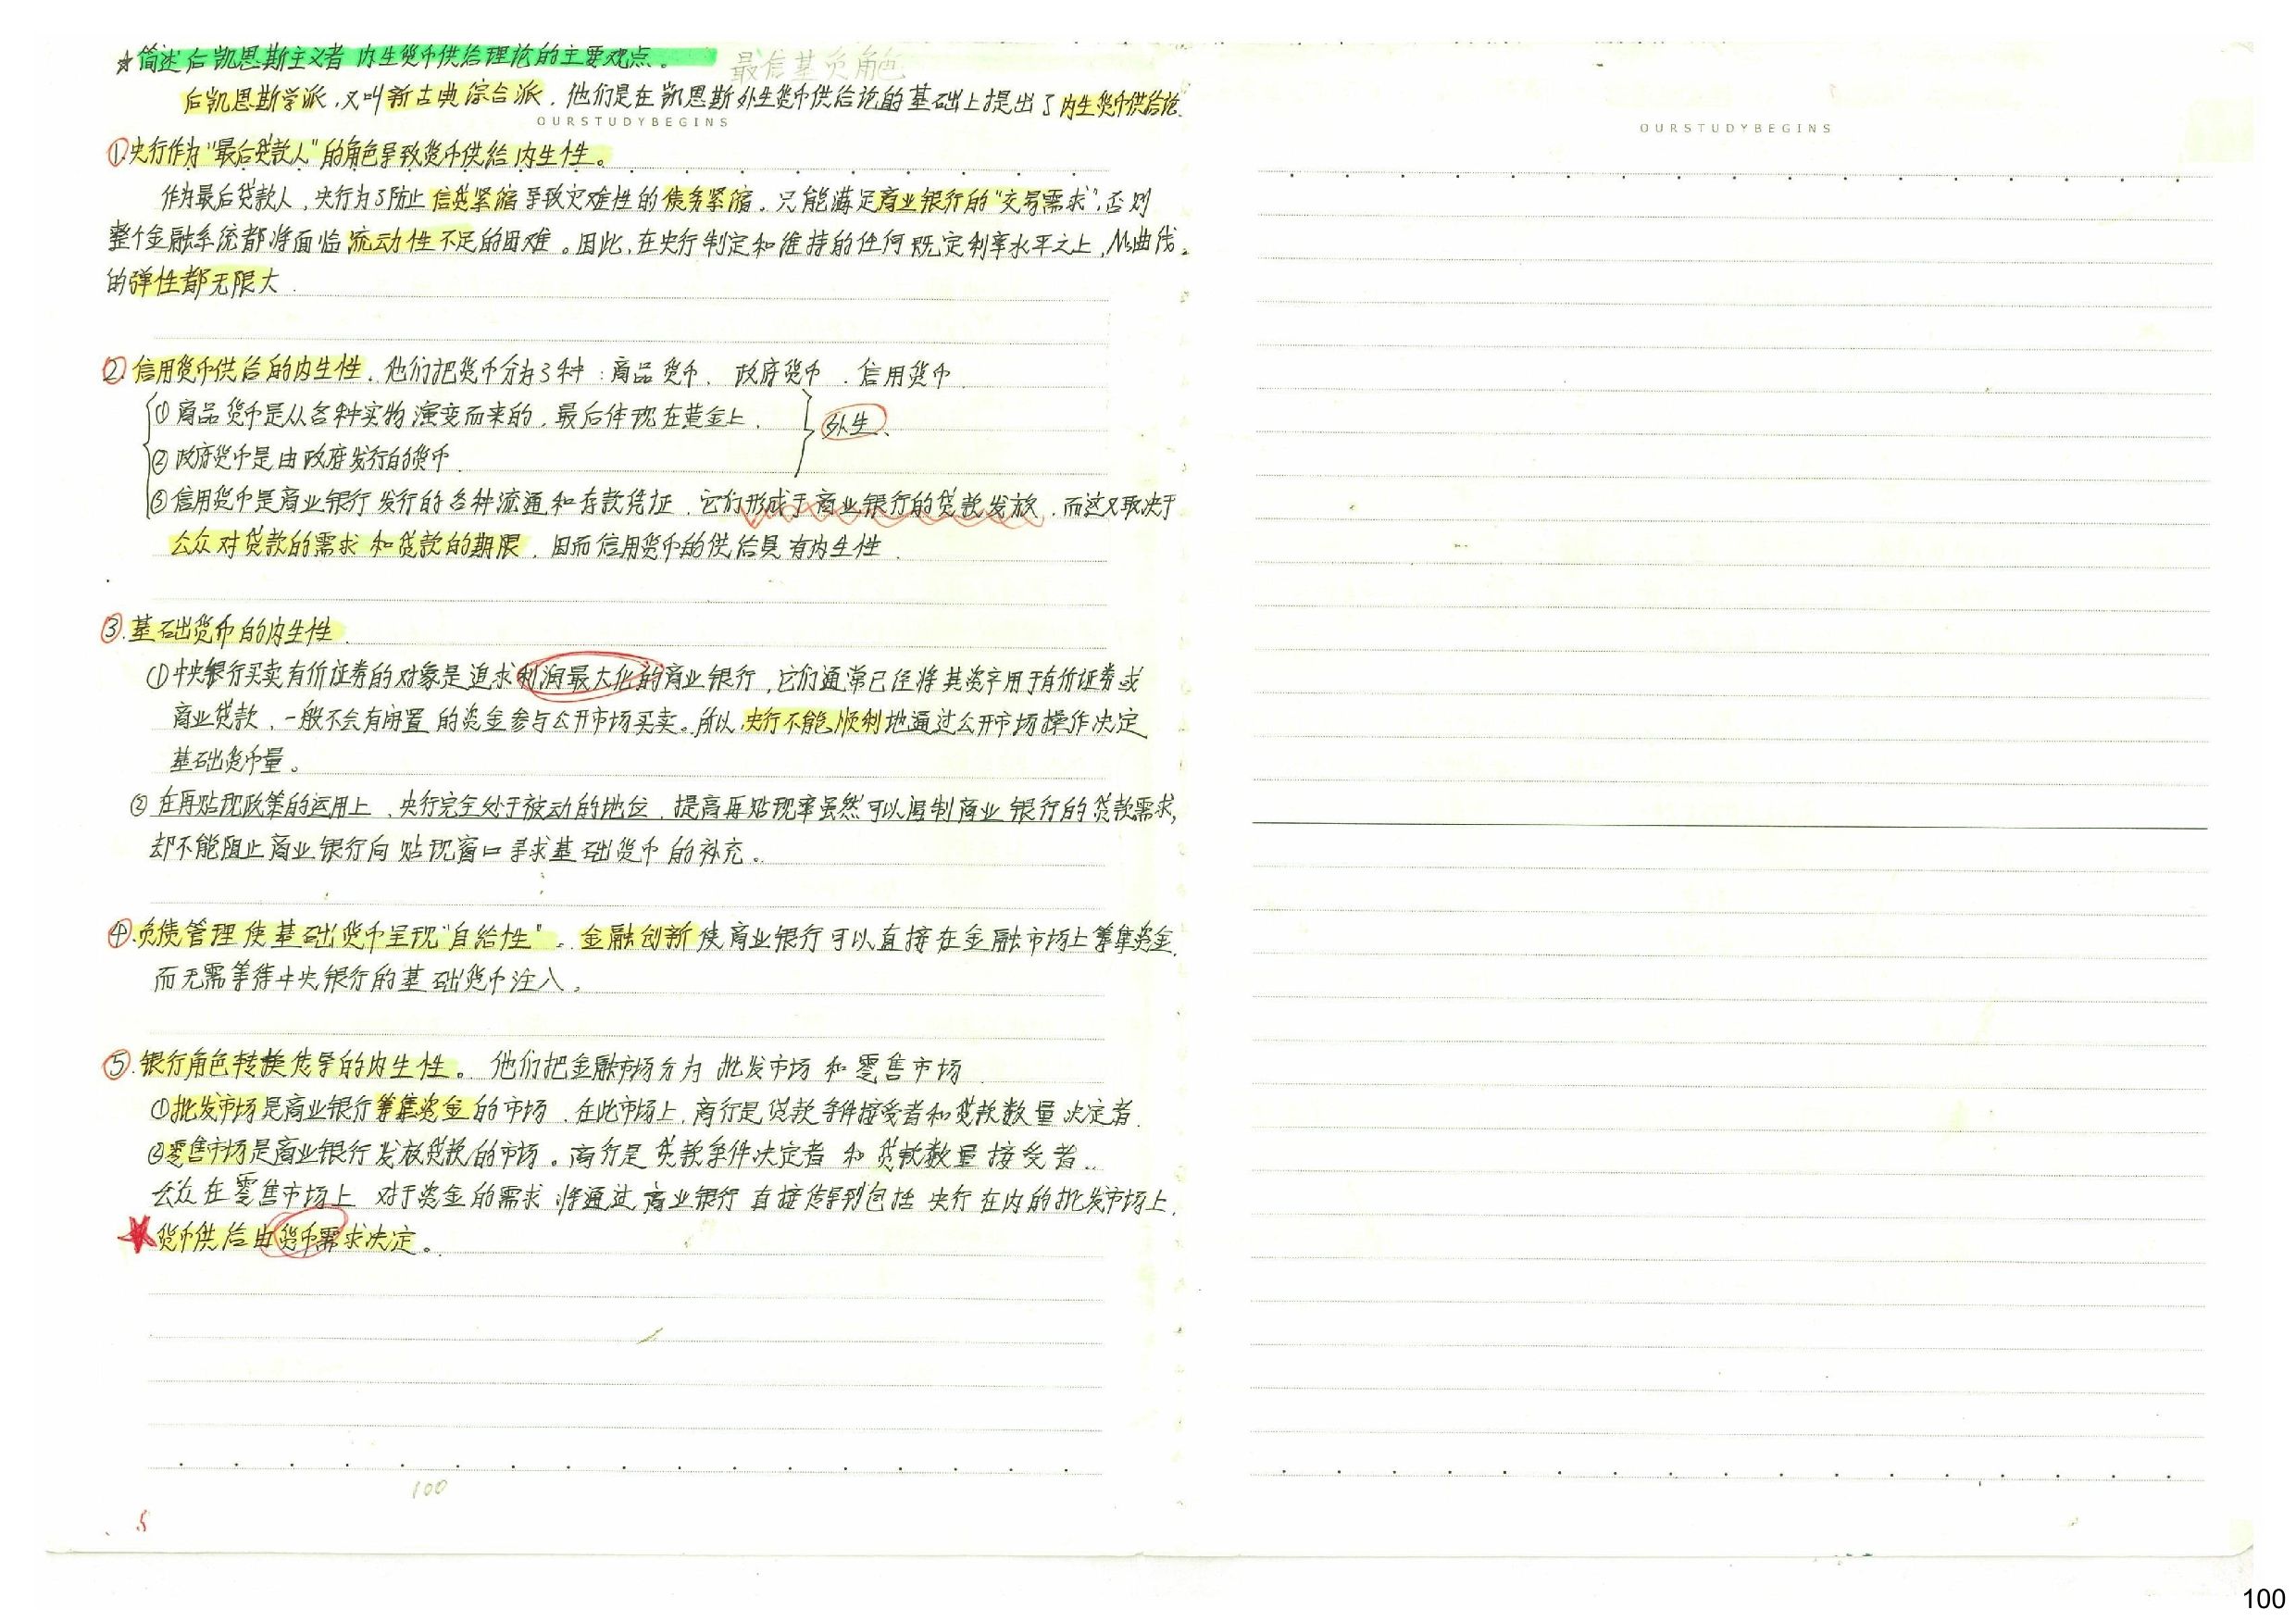 ★简述后凯恩斯主义者内生货币供给理论的主要观点。 最信基负角色
后凯恩斯学派,又叫新古典综合派,他们是在凯恩斯外生货币供给论的基础上提出了内生货币供给论.
OURSTUDYBEGINS
①.央行作为“最后贷款人”的角色导致货币供给内生性。
作为最后贷款人,央行为了防止信贷紧缩导致灾难性的债务紧缩,只能满足商业银行的“交易需求”,否则
整个金融系统都将面临流动性不足的困难。因此,在央行制定和维持的任何既定利率水平之上,Ms曲线
的弹性都无限大.
②.信用货币供给的内生性,他们把货币分为3种:商品货币、政府货币、信用货币
①商品货币是从各种实物演变而来的,最后体现在黄金上.
外生、
②政府货币是由政府发行的货币.
③信用货币是商业银行发行的各种流通和存款凭证,它们形成于商业银行的贷款发放,而这又取决于
公众对贷款的需求和贷款的期限,因而信用货币的供给具有内生性.
③.基础货币的内生性.
①中央银行买卖有价证券的对象是追求利润最大化的商业银行,它们通常已经将其资产用于有价证券或
商业贷款,一般不会有闲置的资金参与公开市场买卖。所以,央行不能顺利地通过公开市场操作决定
基础货币量。
②在再贴现政策的运用上,央行完全处于被动的地位,提高再贴现率虽然可以遏制商业银行的贷款需求,
却不能阻止商业银行向贴现窗口寻求基础货币的补充。
④.负债管理使基础货币呈现“自给性”。金融创新使商业银行可以直接在金融市场上筹集资金,
而无需等待中央银行的基础货币注入。
⑤.银行角色转换传导的内生性。他们把金融市场分为批发市场和零售市场
①批发市场是商业银行筹集资金的市场,在此市场上,商行是贷款条件接受者和贷款数量决定者.
②零售市场是商业银行发放贷款的市场。商行是贷款条件决定者和贷款数量接受者..
公众在零售市场上对于资金的需求将通过商业银行直接传导到包括央行在内的批发市场上,
★货币供给由货币需求决定。
100
5
OURSTUDYBEGINS
100